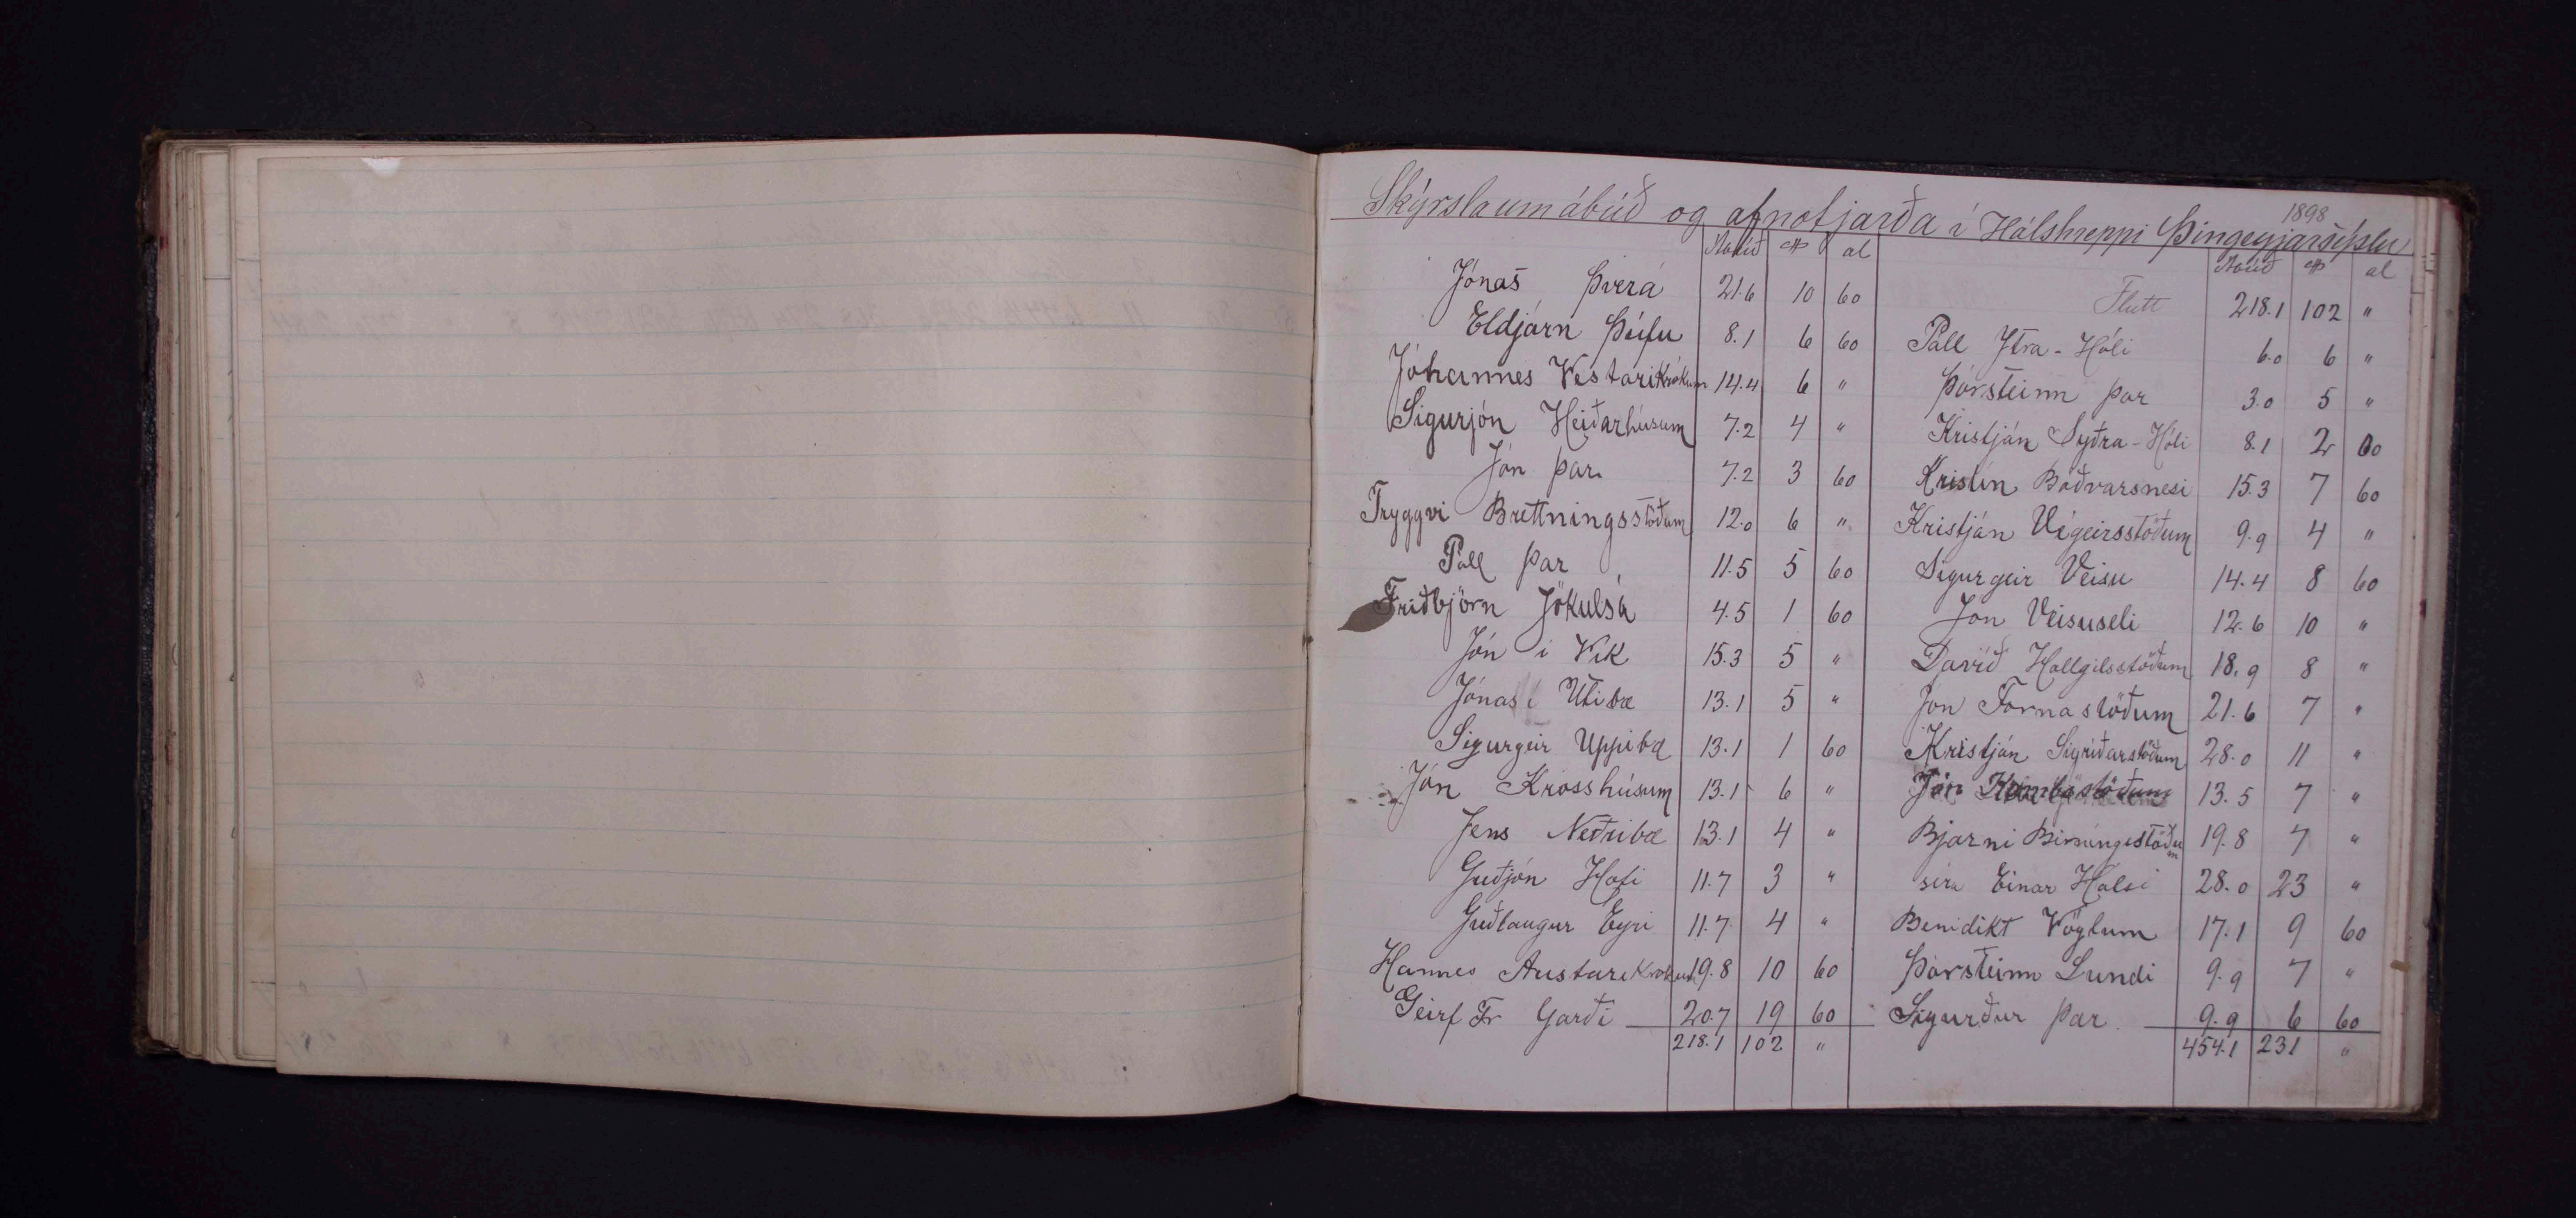 Skýrsla um ábúð og afnot jarða í Hálshreppi Þingeyjarsýslu 1898
al
Jónas Þverá 21.6 10 60
Eldjárn Þúfu 8.1 6 60
Jóhannes Vestarikrókum 14.4 6 "
Sigurjón Heiðarhúsum 7.2 4 "
Jón þar 7.2 3 60
Tryggvi Brettningsstöðum 12.0 6 "
Páll þar 11.5 5 60
Friðbjörn Jökulsá 4.5 1 60
Jón í Vík 15.3 5 "
Jónas í Útibæ 13.1 5 "
Sigurgeir Uppibæ 13.1 1 60
Jón Krosshúsum 13.1 6 "
Jens Neðribæ 13.1 4 "
Guðjón Hofi 11.7 3 "
Guðlaugur Eyri 11.7 4 "
Hannes Austarikrókum 19.8 10 60
Geirf Fr Garði 20.7 19 60
218.1 102 "
al
Flutt 218.1 102 "
Páll Ytra-Hóli 6.0 6 "
Þórsteinn þar 3.0 5 "
Kristján Syðra-Hóli 8.1 2 60
Kristín Böðvarsnesi 15.3 7 60
Kristján Végeirsstöðum 9.9 4 "
Sigurgeir Veisu 14.4 8 60
Jón Veisuseli 12.6 10 "
Davíð Hallgilsstöðum 18.9 8 "
Jón Fornastöðum 21.6 7 "
Kristján Sigríðarstöðum 28.0 11 "
Jón Kambsstöðum 13.5 7 "
Bjarni Birningsstöðum 19.8 7 "
séra Einar Hálsi 28.0 23 "
Benidikt Vöglum 17.1 9 60
Þórsteinn Lundi 9.9 7 "
Sigurður þar 9.9 6 60
454.1 231 "